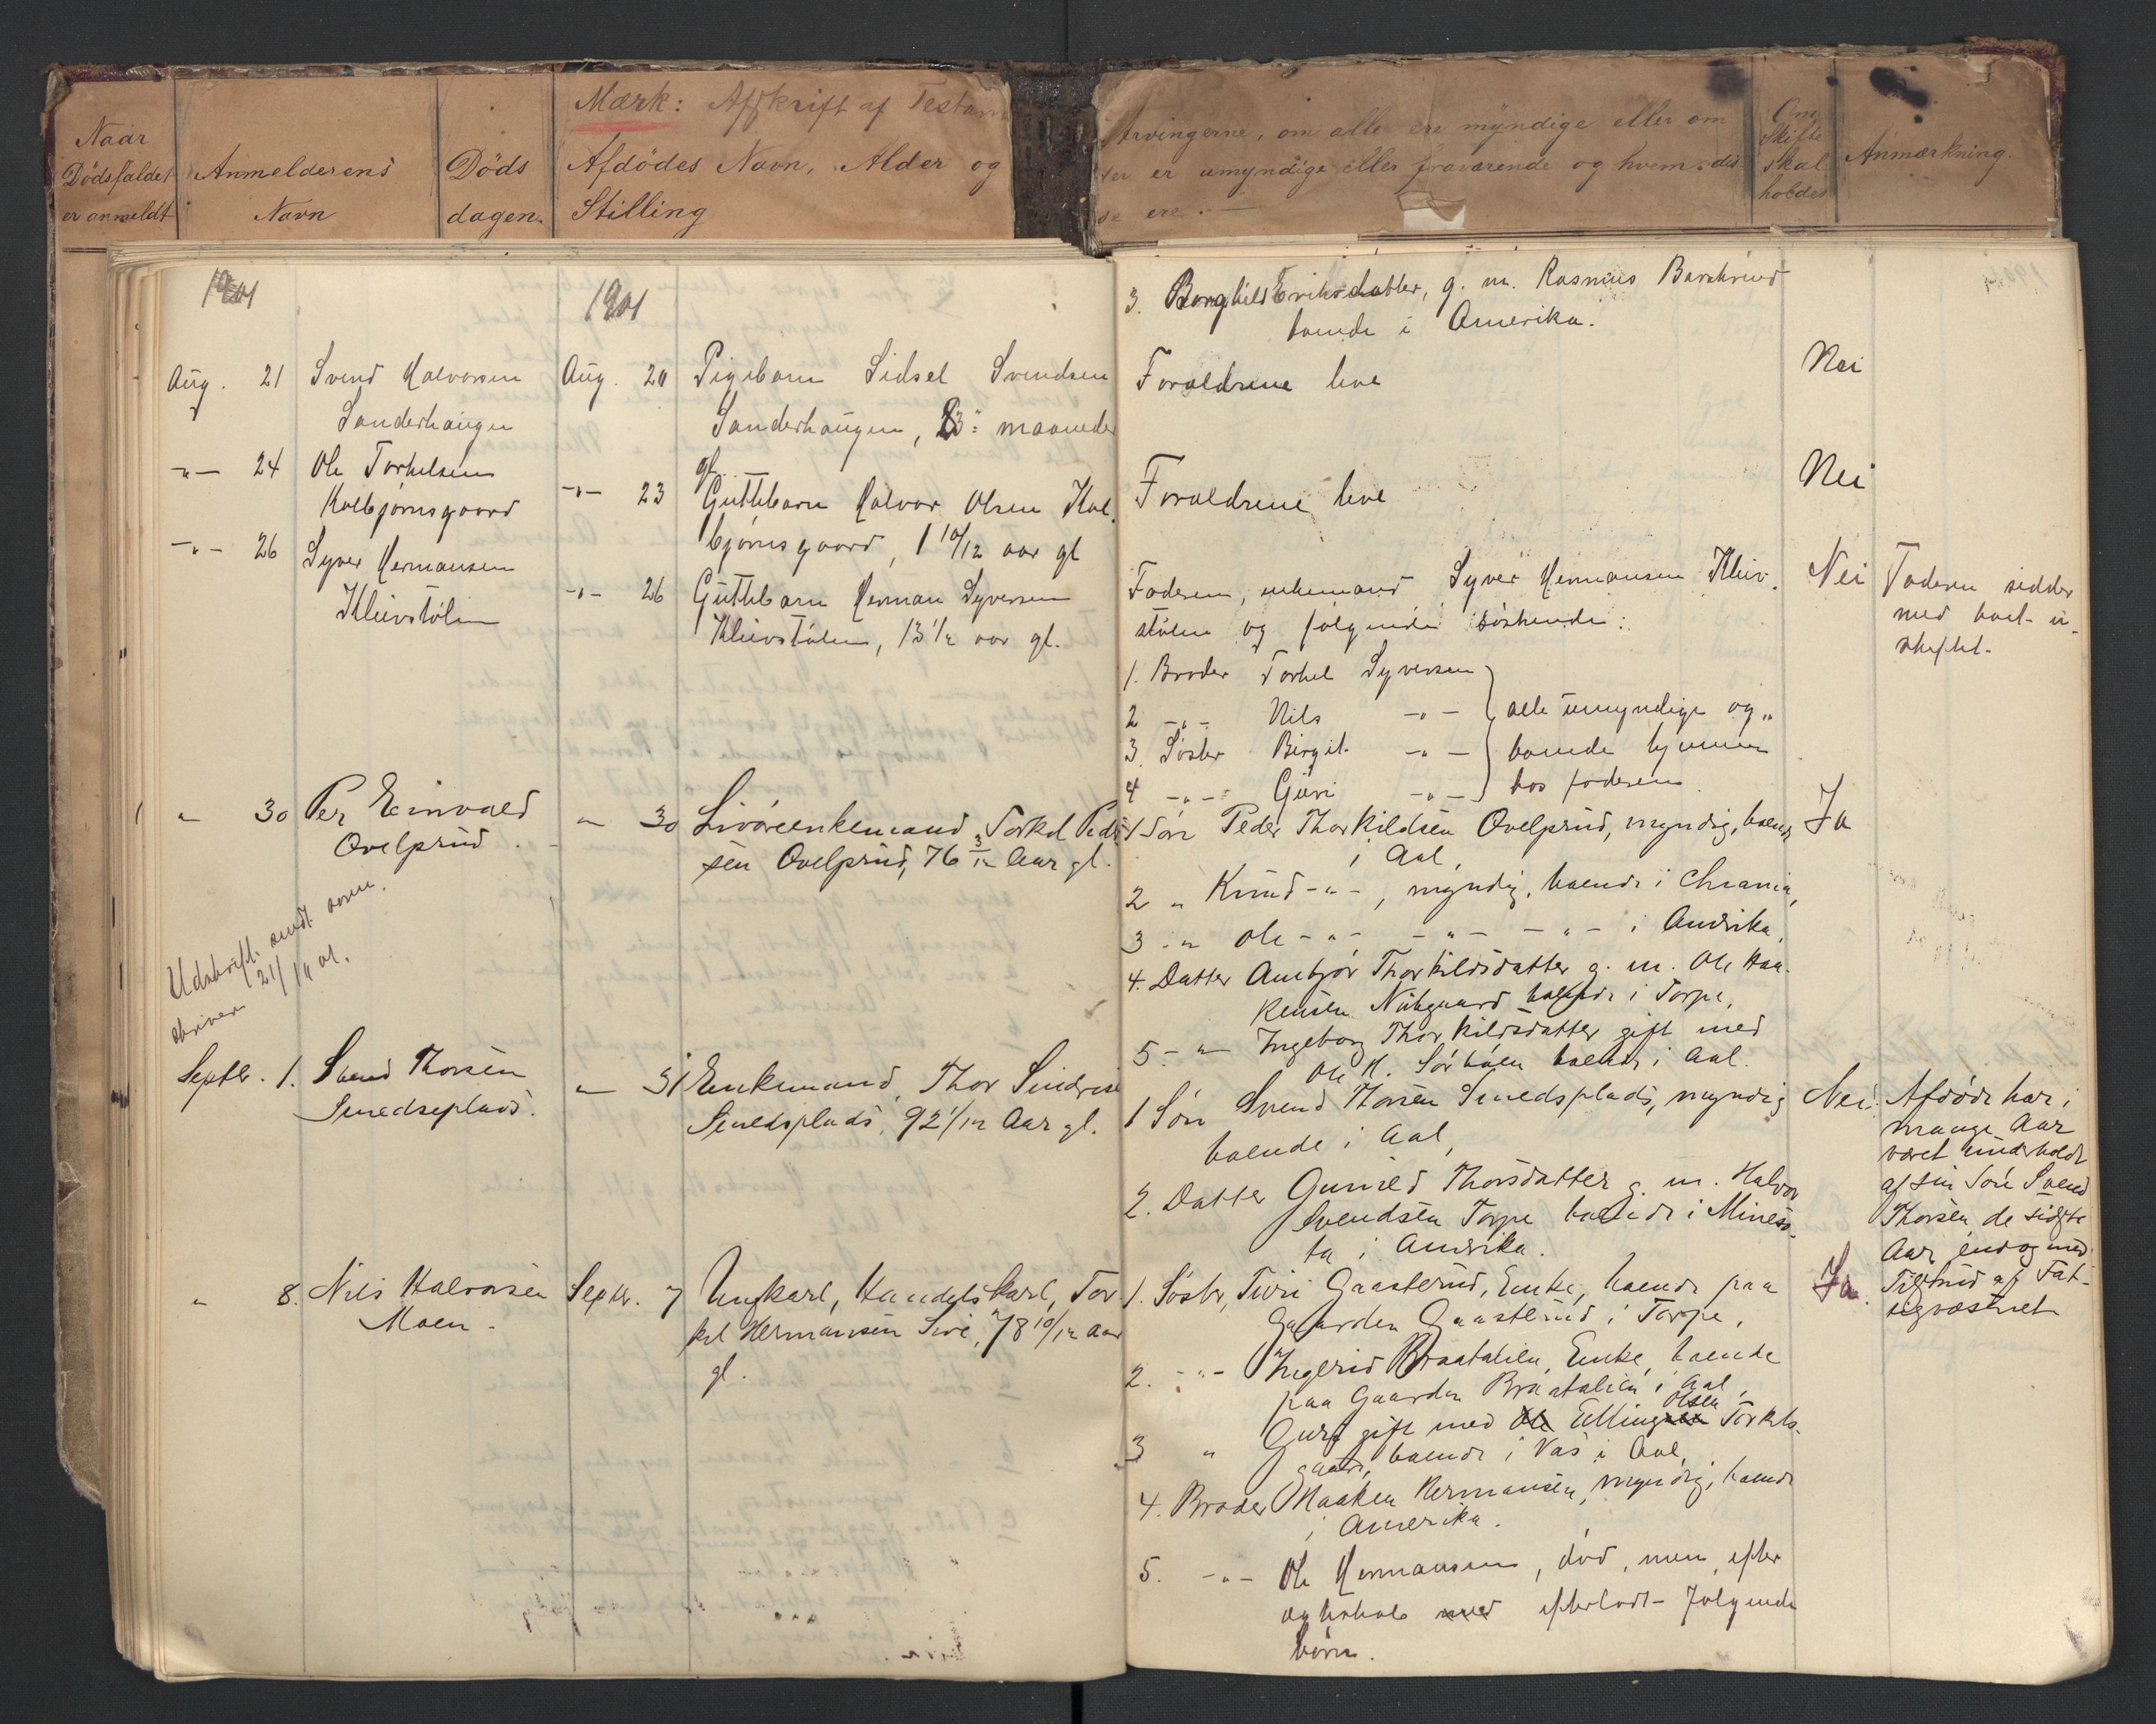 Naar
Dödsfaldet
er anmeldt
Anmelderens
Navn
Döds
dagen.
Mærk: Afskrift af Testam
Afdödes Navn, Alder og
Stilling
Arvingerne, om alle ere myndige eller om
er umyndige eller fraværende og hvem dis-
se ere. —
Om
Skifte
skal
holdes
Anmærkning.
1901
1901
3. Borghild Eriksdatter, g. m. Rasmus
boende i Amerika.
Aug. 21 Svend Halvorsen
Sanderhaugen
Aug. 20 Pigebarn Sidsel Svendsen
Sanderhaugen, maaneder
gl.
Forældrene leve
Nei
-"- 24 Ole Torkelsen
Kolbjørnsgaard
-"- 23 Guttebarn Halvor Olsen Kol-
bjørnsgaard, 1 10/12 aar gl
Forældrene leve
Nei
-"- 26 Syver Hermansen
Kleivstølen
-"- 26 Guttebarn Herman Syversen
Kleivstølen, 13 1/2 aar gl.
Faderen, enkemand Syver Hermansen Kleiv-
stølen og følgende søskende:
1. Broder Torkel Syversen
2 -"- Nils -"-
3. Søster Birgit -"-
4 -"- Guri -"-
alle umyndige og
boende hjemme
hos faderen.
Nei
Faderen sidder
med boet u-
skiftet.
" 30 Per Einvald
Ovelprud
" 30 Livöreenkemand Torkel Peder-
sen Ovelprud, 76 3/12 Aar gl.
1 Sön Peder Thorkildsen Ovelprud, myndig, boende
i Aal,
2 " Knud -"-, myndig, boende i Chrania,
3 -" Ole -"- -"- -"- i Amerika.
4. Datter Ambjör Thorkildsdatter g. m. Ole Haa-
kensen Nubgaard boende i Torpe,
5 -"- Ingeborg Thorkildsdatter gift med
Ole H. Sörböen boende i Aal.
Ja
Udskrift sendt
skriver 21/10 01.
Septbr. 1. Svend Thorsen
Smedsplads.
" 31 Enkemand, Thor Sindresen
Smedsplads, 92 1/12 Aar gl.
1 Sön Svend Thorsen Smedsplads, myndig
boende i Aal,
2. Datter Gunild Thorsdatter g. m. Halvor
Svendsen Torpe boende i Mineso-
ta i Amerika.
Nei.
Afdöde har i
mange Aar
været underholdt
af sin Sön Svend
Thorsen de sidste
Aar endog med
Tilskud af Fat-
tigvæsenet
" 8. Nils Halvorsen
Moen.
Septbr. 7 Ungkarl, Handelskarl, Tor
kel Hermansen Sire, 78 10/12 Aar
gl.
1. Söster, Turi Gaasterud, Enke, boende paa
Gaarden Gaasterud i Torpe,
2. -"- Ingerid Braatalien, Enke, boende
paa Gaarden Braatalien i Aal,
3 " Guri gift med Elling Olsen Torkels-
gaard, boende i Vas i Aal,
4. Broder Haaken Hermansen, myndig, boende
i Amerika.
5. -"- Ole Hermansen, död, men efter
ægteskab med efterladt følgende
børn.
Ja.